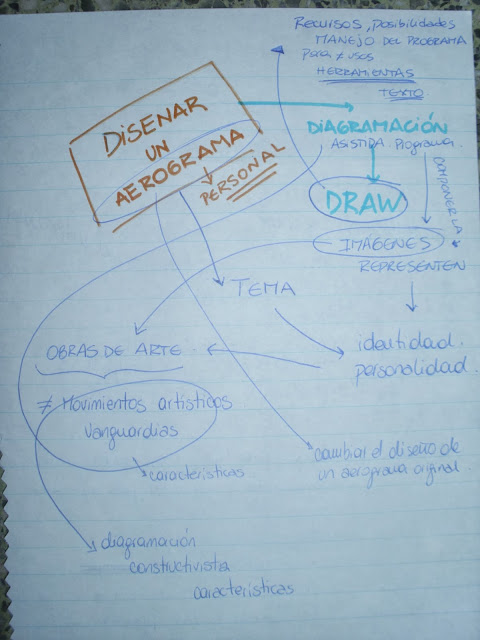 Recursos, posibilidades
MANEJO DEL PROGRAMA
para ≠ usos
HERRAMIENTAS
TEXTO
DISEÑAR
UN
AEROGRAMA
PERSONAL
DIAGRAMACIÓN
ASISTIDA. Programa.
COMPONER LA
DRAW
IMÁGENES
REPRESENTEN
TEMA
identidad.
personalidad.
OBRAS DE ARTE.
≠ Movimientos artísticos
Vanguardias
características.
cambiar el diseño de
un aerograma original.
diagramación
constructivista
características